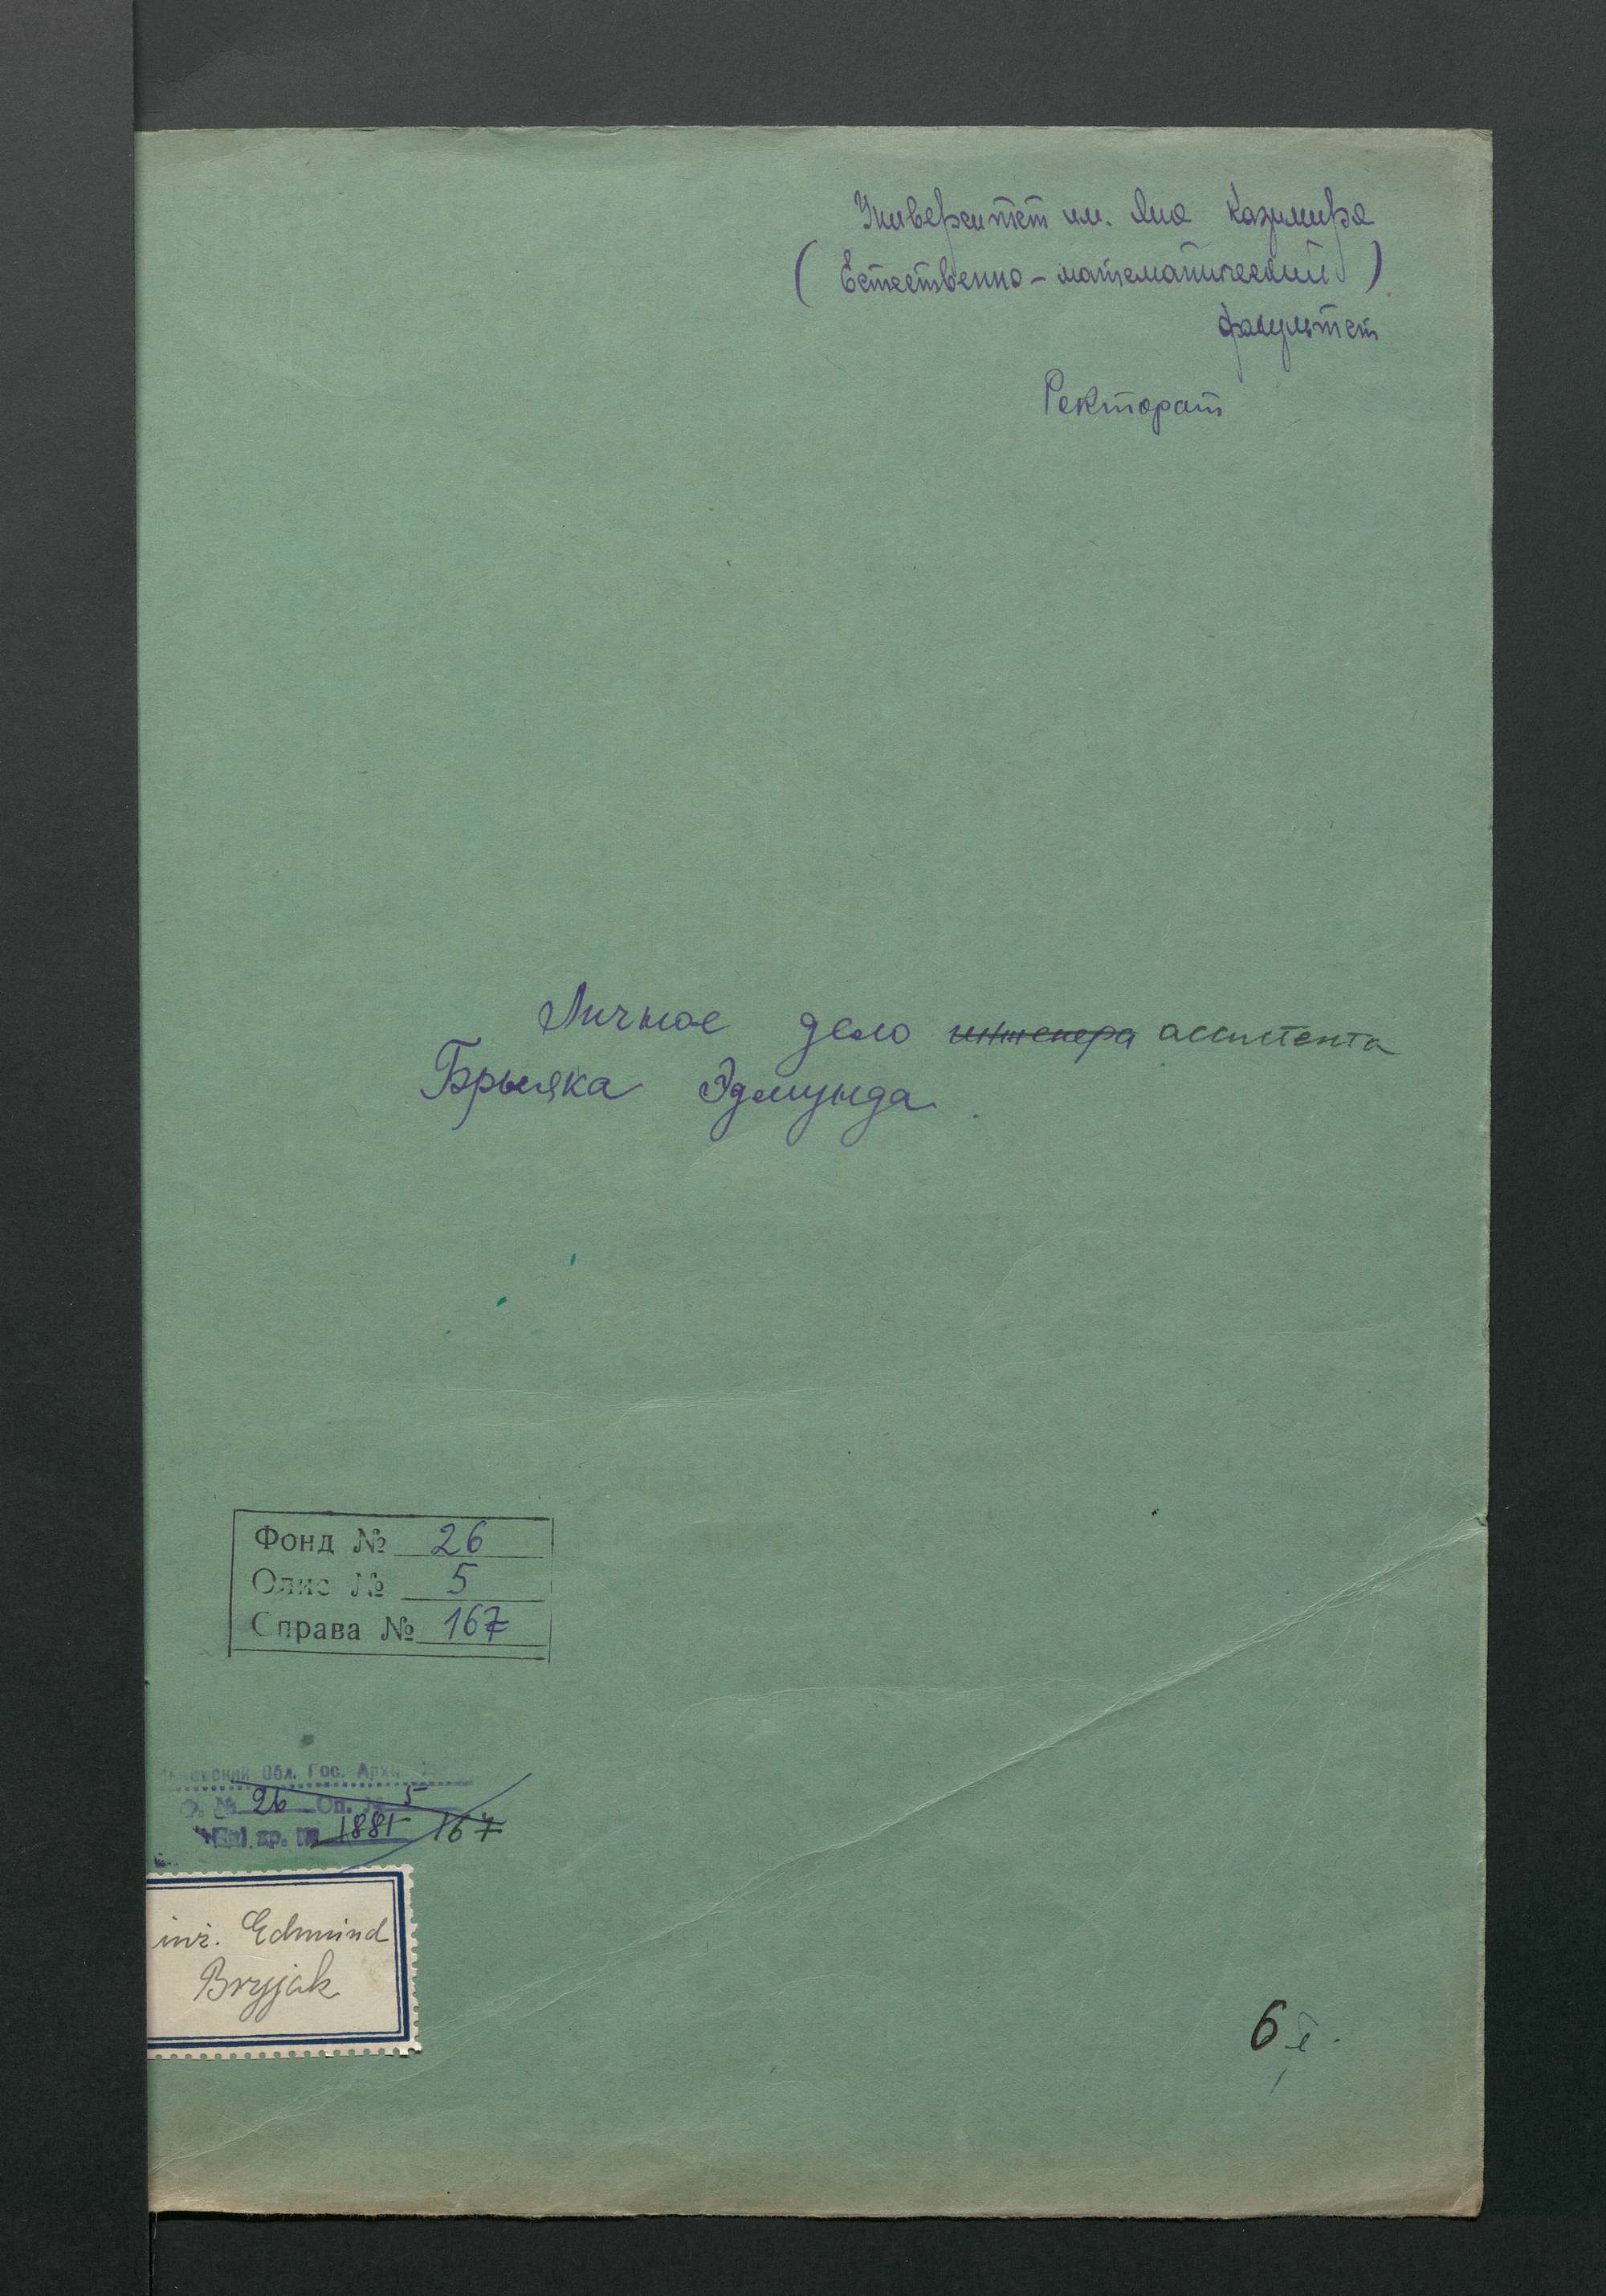 Университет им. Яна Казимира
(Естественно-математический)
факультет
Ректорат
Личное дело инженера ассистента
Брыяка Эдмунда.
Фонд № 26
Опис № 5
Справа № 167
Обл. Гос. Архив
Ф. № 26 Оп. № 5
Ед. хр. № 1881 167
inż. Edmund
Bryjak
6